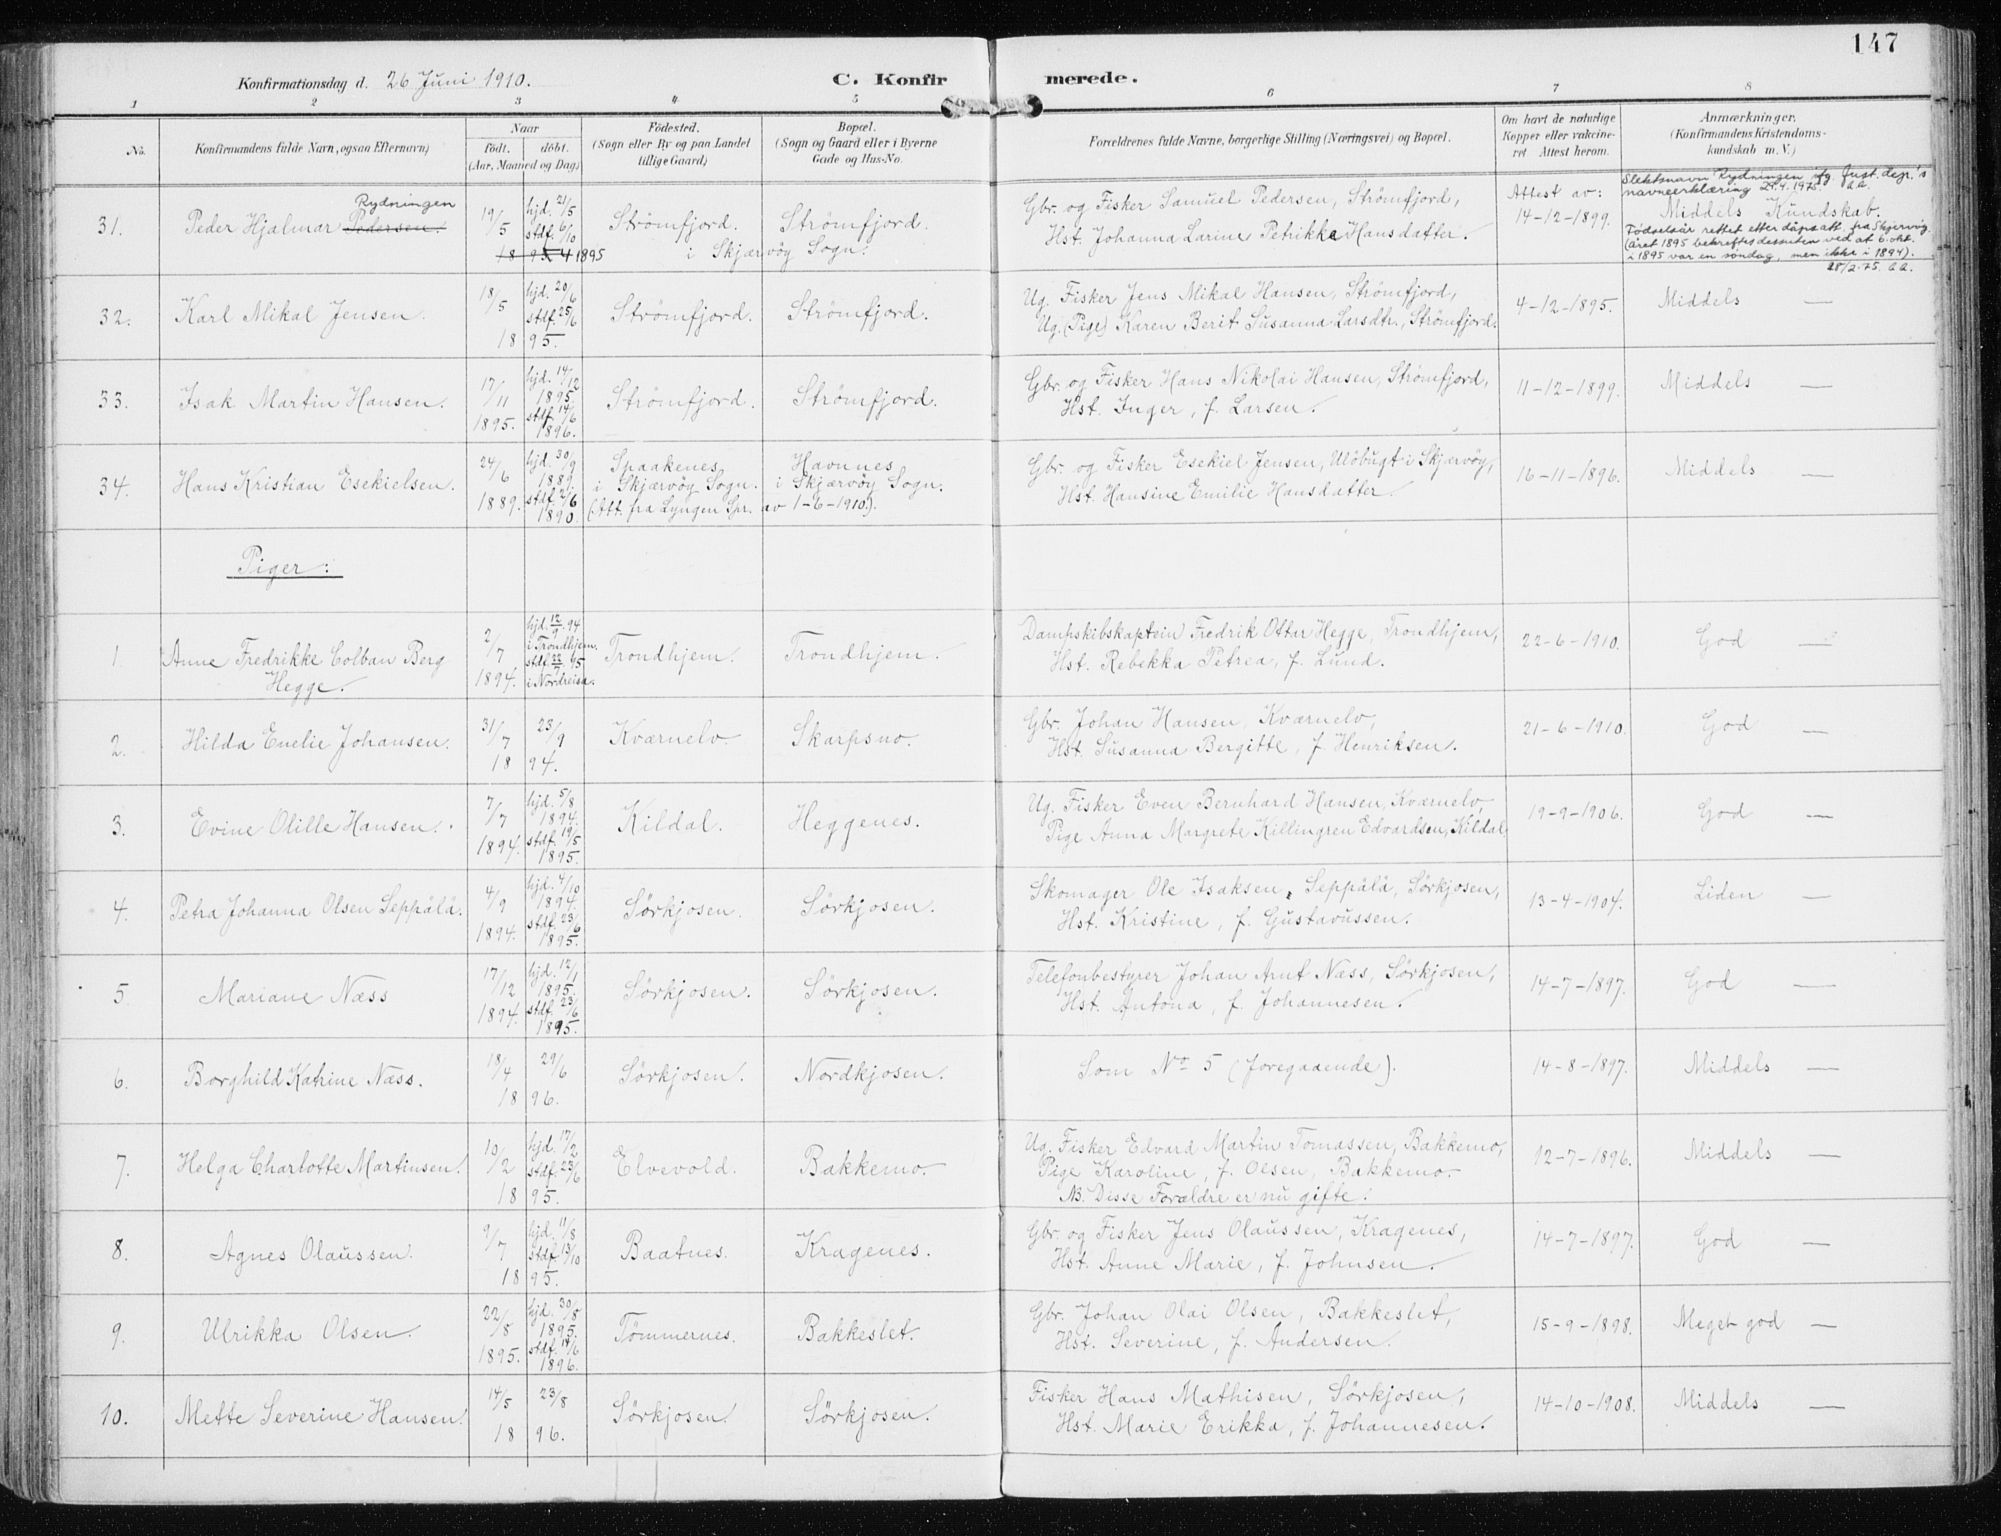 147
Konfirmationsdag d. 26 Juni 1910.
C. Konfirmerede.
1 2 3 4 5 6 7 8
No.
Konfirmandens fulde Navn, ogsaa Efternavn)
Naar
födt. döbt.
(Aar, Maaned og Dag)
Födested.
(Sogn eller By og paa Landet
tillige Gaard)
Bopæl.
(Sogn og Gaard eller i Byerne
Gade og Hus-No.
Forældrenes fulde Navne, borgerlige Stilling (Næringsvei) og Bopæl.
Om havt de naturlige
Kopper eller vakcine-
ret Attest herom.
Anmærkninger.
(Konfirmandens Kristendoms-
kundskab m. V.)
31.
Rydningen
Peder Hjalmar Pedersen.
19/5
hjd. 21/5
stdf. 6/10
18 95 4 1895
Strömfjord. Strömfjord.
i Skjærvöy Sogn.
Gbr. og Fisker Samuel Pedersen, Strömfjord,
Hst. Johanna Larine Petrikke Hansdatter.
Attest av:
14-12-1899.
Slektsnavn Rydningen ifg. Just. dep.'s
navneerklæring 29.4.1975
Middels Kundskab.
Födselsår rettet etter dåpsatt. fra Skjervøy.
(året 1895 bekreftes dessuten ved at 6. okt.
i 1895 var en søndag, men ikke i 1894).
28/2.75.
32.
Karl Mikal Jensen.
18/5
hjd. 20/6
stdf. 25/6
18 95.
Strömfjord.
Strömfjord.
Ug. Fisker Jens Mikal Hansen, Strömfjord,
Ug. (Pige) Karen Berit Susanna Larsdtr., Strömfjord.
4-12-1895.
Middels —
33.
Isak Martin Hansen.
17/11
1895.
hjd. 14/12
1895.
stdf. 14/6
1896.
Strömfjord.
Strömfjord.
Gbr. og Fisker Hans Nikolai Hansen, Strömfjord,
Hst. Inger, f. Larsen.
11-12-1899.
Middels —
34.
Hans Kristian Esekielsen.
24/6
1889.
hjd. 30/9
1889.
stdf. 2/6
1890.
Spaakenes
i Skjærvöy Sogn.
Havnnes
i Skjærvöy Sogn.
(Att. fra Lyngen Spr. av 1-6-1910.).
Gbr. og Fisker Esekiel Jensen, Ulöbugt i Skjærvöy,
Hst. Hansine Emilie Hansdatter.
16-11-1896.
Middels —
Piger:
1.
Anne Fredrikke Colban Berg
Hegge.
2/7
1894.
hjd. 12/9. 94
i Trondhjem.
stdf. 22/7 95
i Nordreisa.
Trondhjem.
Trondhjem.
Dampskibskaptein Fredrik Ottar Hegge, Trondhjem,
Hst. Rebekka Petrea, f. Lund.
22-6-1910.
God —
2.
Hilda Enelie Johansen.
31/7 23/9
18 94.
Kværnelv.
Skarpsno.
Gbr. Johan Hansen, Kværnelv,
Hst. Susanna Bergitte, f. Henriksen.
21-6-1910.
God —
3.
Evine Olille Hansen.
7/7
1894.
hjd. 5/8
1894.
stdf. 19/5
1895.
Kildal.
Heggenes.
Ug. Fisker Even Bernhard Hansen, Kværnelv,
Pige Anna Margrete Killingren Edvardsen, Kildal
19-9-1906.
God —
4.
Petra Johanna Olsen Seppälä.
4/9
1894.
hjd. 4/10
1894.
stdf. 23/6
1895.
Sörkjosen.
Sörkjosen.
Skomager Ole Isaksen Seppälä, Sörkjosen,
Hst. Kristine, f. Gustavussen.
13-4-1904.
Liden —
5.
Mariane Næss
17/12
1894.
hjd. 12/1
1895.
stdf. 23/6
1895.
Sörkjosen.
Sörkjosen.
Telefonbestyrer Johan Arnt Næss, Sörkjosen,
Hst. Antona, f. Johannesen.
14-7-1897.
God —
6.
Borghild Katrine Næss.
18/4 29/6
18 96.
Sörkjosen.
Nordkjosen.
Som No 5 (foregaaende).
14-8-1897.
Middels —
7.
Helga Charlotte Martinsen.
10/2
hjd. 17/2
stdf. 23/6
18 95.
Elvevold.
Bakkemo.
Ug. Fisker Edvard Martin Tomassen, Bakkemo,
Pige Karoline, f. Olsen, Bakkemo.
NB. Disse Forældre er nu gifte!
12-7-1896.
Middels —
8.
Agnes Olaussen.
9/7
hjd. 11/8
stdf. 13/10
18 95.
Baatnes.
Kragenes.
Gbr. og Fisker Jens Olaussen, Kragenes,
Hst. Anne Marie, f. Johnsen.
14-7-1897.
God —
9.
Ulrikka Olsen.
22/8
1895.
hjd. 30/8
1895.
stdf. 14/6
1896.
Tömmernes.
Bakkeslet.
Gbr. Johan Olai Olsen, Bakkeslet,
Hst. Severine, f. Andersen.
15-9-1898.
Meget god —
10.
Mette Severine Hansen.
14/5 23/8
18 96.
Sörkjosen.
Sörkjosen.
Fisker Hans Mathisen, Sörkjosen,
Hst. Marie Erikka, f. Johannesen.
14-10-1908.
Middels —